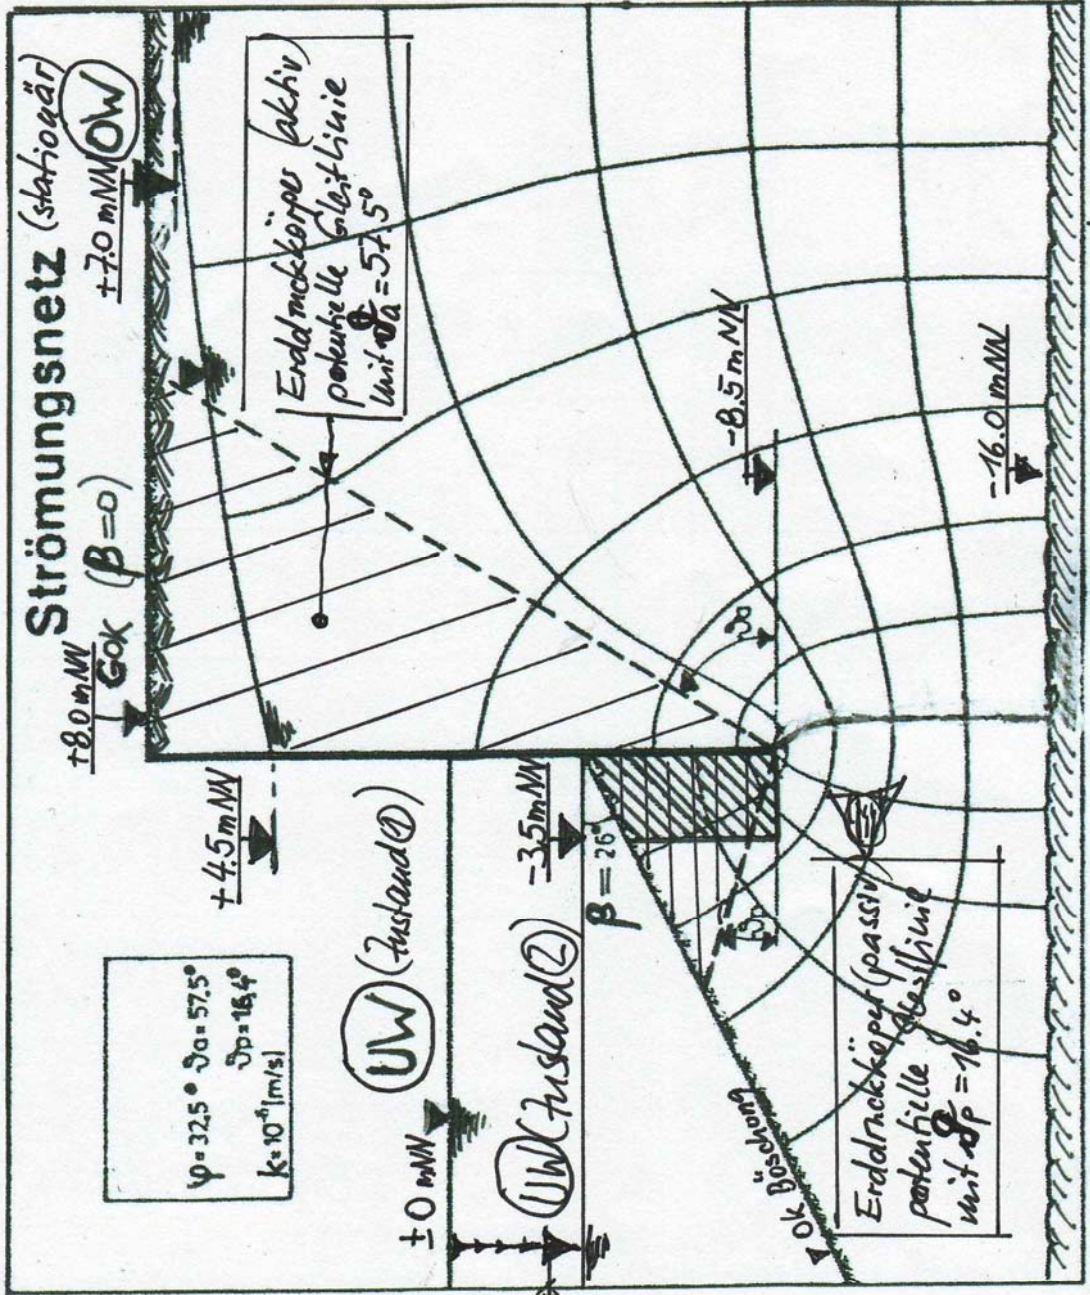 Strömungsnetz (stationär)
+8.0 mNN
GOK (β=0)
+7.0 mNN OW
+4.5 mNN
Erddruckkörper (aktiv)
potentielle Gleitlinie
mit ϑa=57.5°
φ=32.5° ϑa=57.5°
ϑp=16,4°
k=10⁻⁴ [m/s]
UW (Zustand ①)
±0 mNN
UW (Zustand ②)
-3.5 mNN
β=26°
-8.5 mNN
ϑa
ϑp
OK Böschung
-16.0 mNN
Erddruckkörper (passiv)
potentielle Gleitlinie
mit ϑp=16.4°